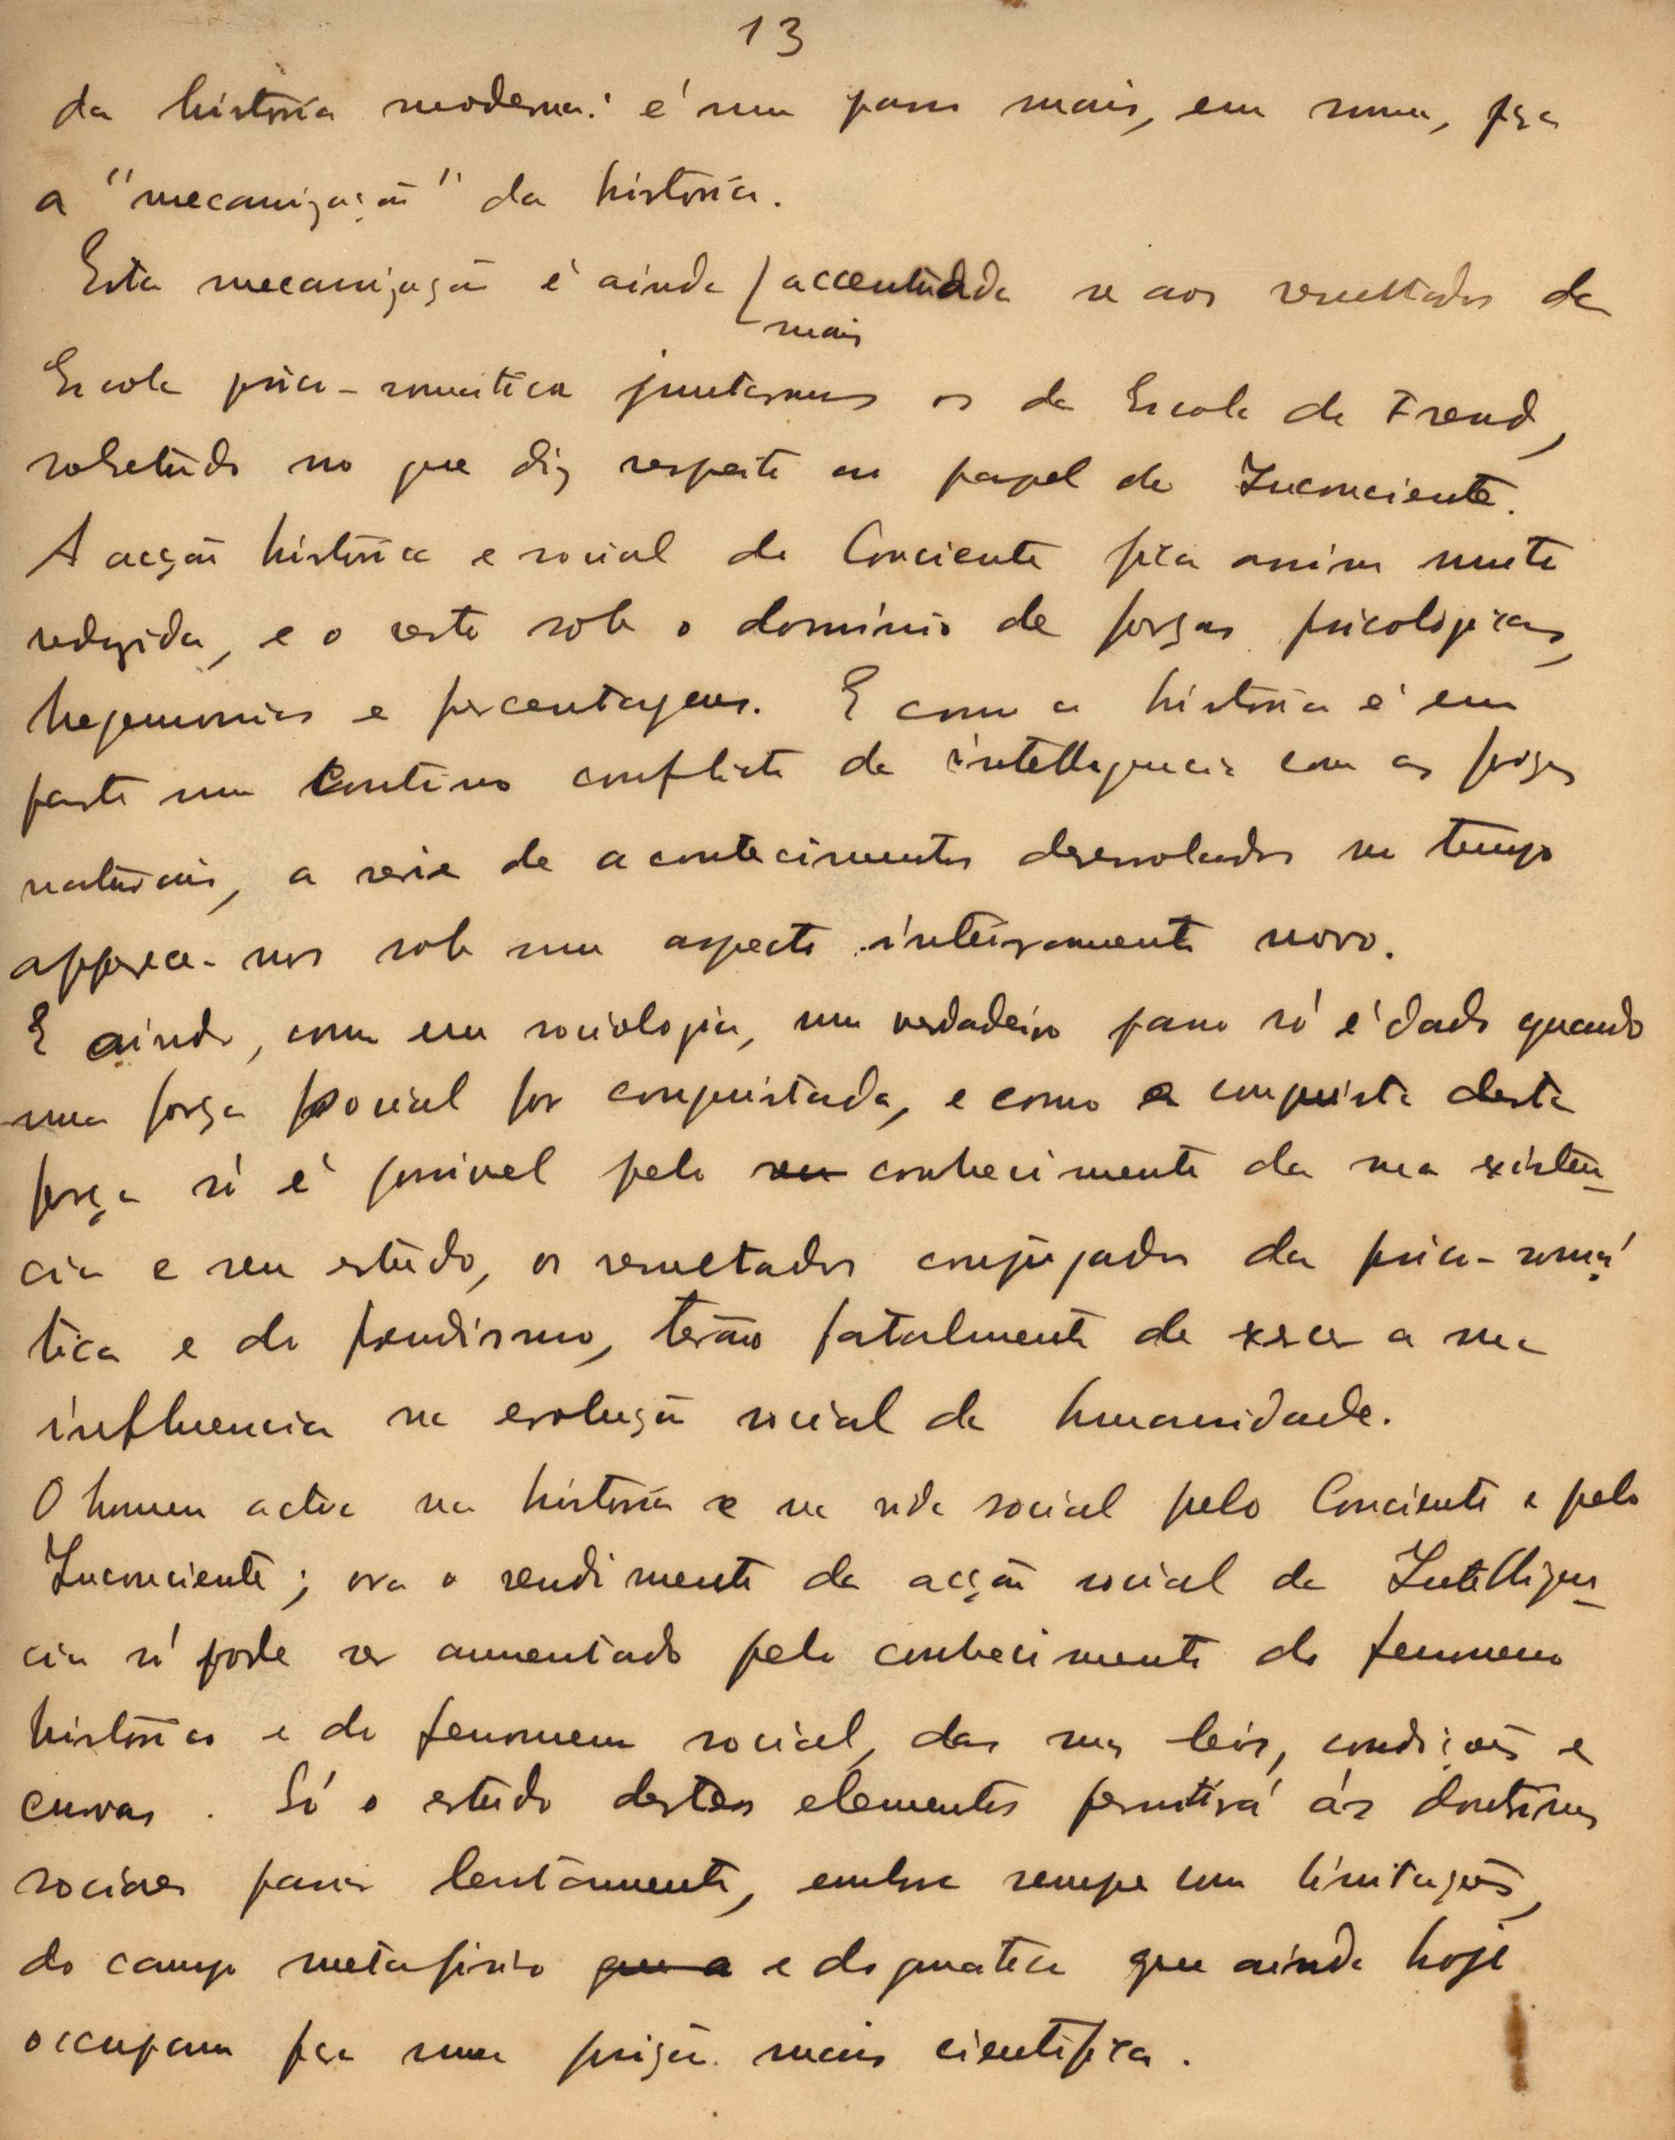 13
da história moderna: é um passo mais, em suma, para
a "mecanização" da história.
Esta mecanização é ainda mais accentuada se aos resultados da
Escola psico-somatica juntarmos os da Escola de Freud,
sobretudo no que diz respeito ao papel do Inconciente.
A acção histórica e social do Conciente fica assim muito
reduzida, e o resto sob o domínio de forças psicologicas,
hegemonias e percentagens. E como a história é em
parte um contínuo conflicto da intelligencia com as forças
naturais, a serie de acontecimentos desenrolados no tempo
apparece-nos sob um aspecto inteiramente novo.
E ainda, como em sociologia, um verdadeiro passo só é dado quando
uma força social for conquistada, e como a conquista desta
força só é possivel pelo conhecimento da sua existen-
cia e seu estudo, os resultados conjugados da psico-somá-
tica e do freudismo, terão fatalmente de exercer a sua
influencia na evolução social da humanidade.
O homem actua na história e na vida social pelo Conciente e pelo
Inconciente; ora o rendimento da acção social da Intelligen-
cia só pode ser aumentado pelo conhecimento do fenomeno
histórico e do fenomeno social, das suas leis, condições e
curvas. Só o estudo destes elementos permitirá ás doutrinas
sociaes passar lentamente, embora sempre com limitações,
do campo metafisico e dogmatico que ainda hoje
occupam para uma posição mais cientifica.